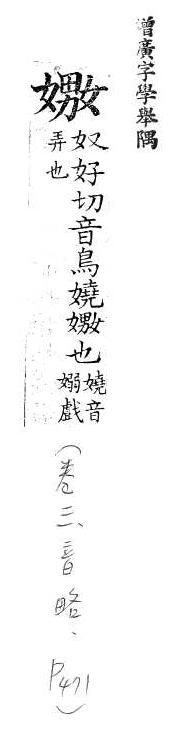 增廣字學舉隅
嫐奴好切音鳥嬈嫐也嬈音
嫋戲
弄也
(卷三、音略、P471)